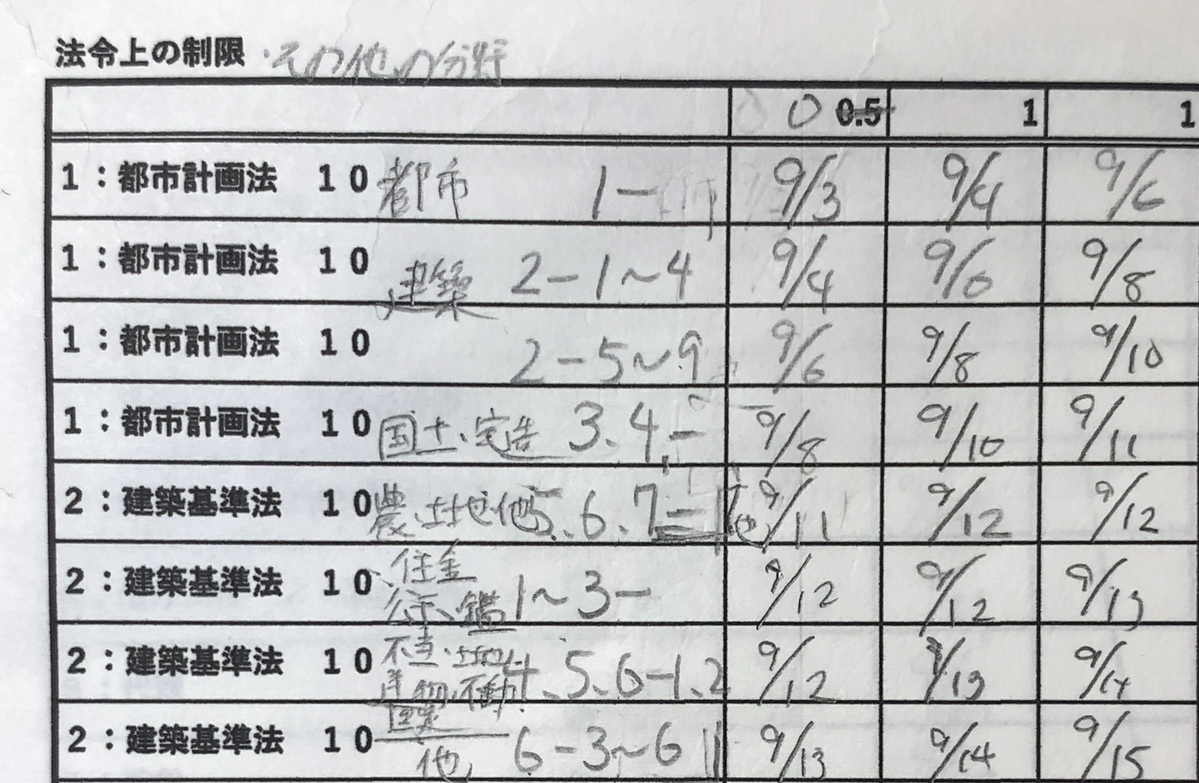 法令上の制限 ・その他の分野
0 0.5 1 1
1：都市計画法 10 都市 1－ 9/3 9/4 9/6
1：都市計画法 10 建築 2－1～4 9/4 9/6 9/8
1：都市計画法 10 2－5～9 9/6 9/8 9/10
1：都市計画法 10 国土、宅造 3.4.－ 9/8 9/10 9/11
2：建築基準法 10 農、土地、他 5、6、7 9/11 9/12 9/12
2：建築基準法 10 、住金 公示、鑑 1～3－ 9/12 9/12 9/13
2：建築基準法 10 不当、土地 建物、不動 4、5、6－1、2 9/12 9/13 9/14
2：建築基準法 10 他 6－3～6 9/13 9/14 9/15